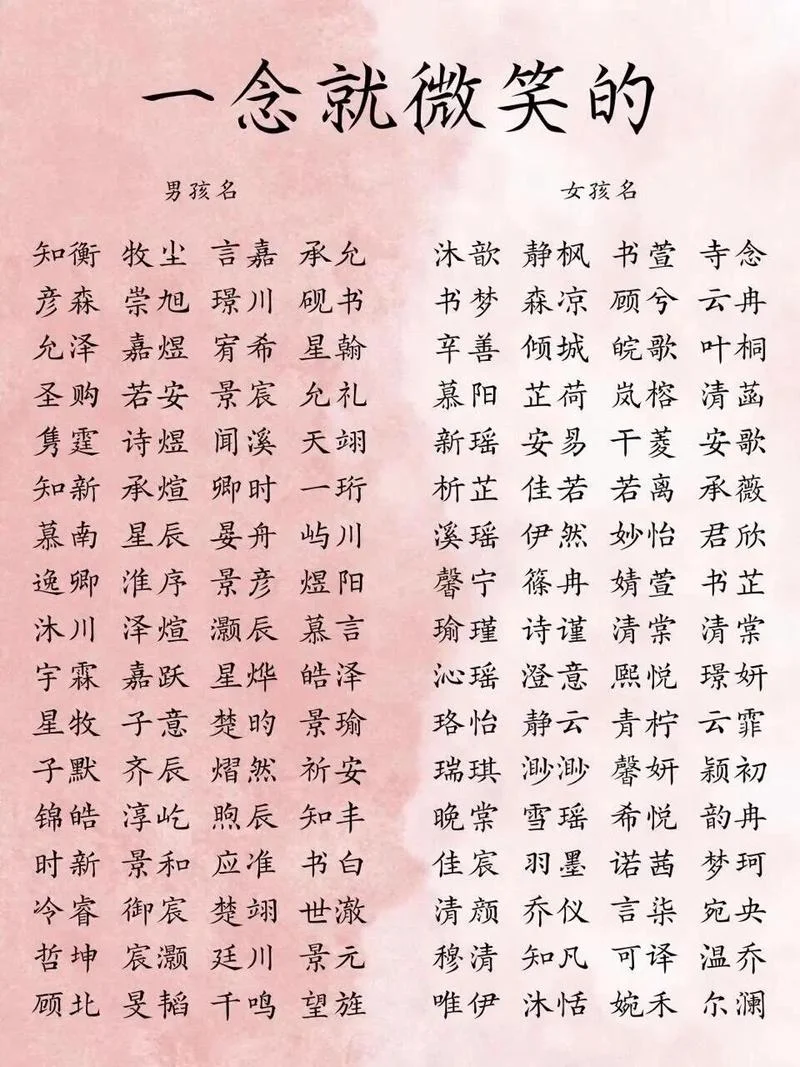 一念就微笑的
男孩名 女孩名
知衡 牧尘 言嘉 承允 沐歆 静枫 书萱 寺念
彦森 崇旭 璟川 砚书 书梦 森凉 顾兮 云冉
允泽 嘉煜 宥希 星翰 辛善 倾城 皖歌 叶桐
圣购 若安 景宸 允礼 慕阳 芷荷 岚榕 清菡
隽霆 诗煜 闻溪 天翊 新瑶 安易 干菱 安歌
知新 承煊 卿时 一珩 析芷 佳若 若离 承薇
慕南 星辰 晏舟 屿川 溪瑶 伊然 妙怡 君欣
逸卿 淮序 景彦 煜阳 馨宁 篠冉 婧萱 书芷
沐川 泽煊 灏辰 慕言 瑜瑾 诗谨 清棠 清棠
宇霖 嘉跃 星烨 皓泽 沁瑶 澄意 熙悦 璟妍
星牧 子意 楚昀 景瑜 珞怡 静云 青柠 云霏
子默 齐辰 熠然 祈安 瑞琪 渺渺 馨妍 颖初
锦皓 淳屹 煦辰 知丰 晚棠 雪瑶 希悦 韵冉
时新 景和 应准 书白 佳宸 羽墨 诺茜 梦珂
冷睿 御宸 楚翊 世澈 清颜 乔仪 言柒 宛央
哲坤 宸灏 廷川 景元 穆清 知凡 可译 温乔
顾北 旻韬 千鸣 望旌 唯伊 沐恬 婉禾 尔澜